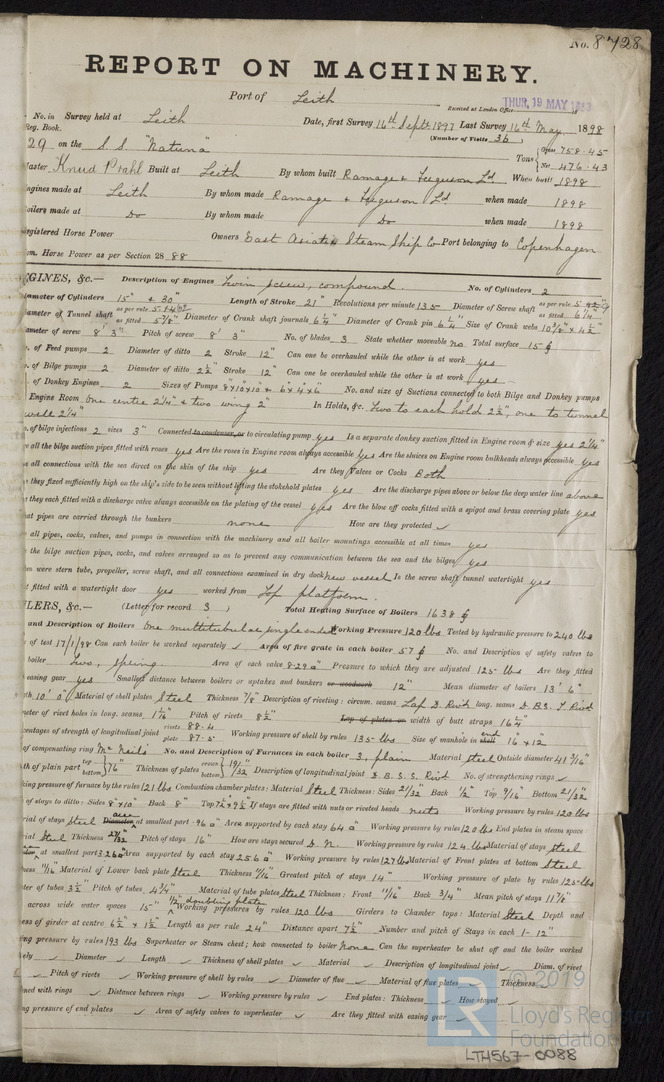 No. 8728
REPORT ON MACHINERY.
Port of Leith
Received at London Office THUR. 19 MAY
No. in Survey held at Leith Date, first Survey 16th Sept. 1897 Last Survey 16th May 1898
Reg. Book. (Number of Visits 36)
29 on the S.S. "Natuna" Tons { Gross 758.45 Net 476.43
Master Knud Prahl Built at Leith By whom built Ramage & Ferguson Ld. When built 1898
Engines made at Leith By whom made Ramage & Ferguson Ld. when made 1898
Boilers made at Do By whom made Do when made 1898
Registered Horse Power Owners East Asiatic Steam Ship Co Port belonging to Copenhagen
Nom. Horse Power as per Section 28 88
ENGINES, &c.— Description of Engines Twin screw, compound. No. of Cylinders 2
Diameter of Cylinders 15" & 30" Length of Stroke 21" Revolutions per minute 135 Diameter of Screw shaft as per rule as fitted 6¼"
Diameter of Tunnel shaft as per rule as fitted 5⅞" Diameter of Crank shaft journals 6¼" Diameter of Crank pin 6¼" Size of Crank webs 10⅝" x 4½"
Diameter of screw 8' 3" Pitch of screw 8' 3" No. of blades 3 State whether moveable no Total surface 15
No. of Feed pumps 2 Diameter of ditto 2 Stroke 12" Can one be overhauled while the other is at work yes
No. of Bilge pumps 2 Diameter of ditto 2½" Stroke 12" Can one be overhauled while the other is at work yes
of Donkey Engines 2 Sizes of Pumps 8"x10"x10" & 6"x4"x6" No. and size of Suctions connected to both Bilge and Donkey pumps
Engine Room One centre 2¼" & two wing 2" In Holds, &c. Two to each hold 2½", one to tunnel
well 2¼"
of bilge injections 2 sizes 3" Connected to condenser, or to circulating pump yes Is a separate donkey suction fitted in Engine room & size yes 2¼"
all the bilge suction pipes fitted with roses yes Are the roses in Engine room always accessible yes Are the sluices on Engine room bulkheads always accessible yes
all connections with the sea direct on the skin of the ship yes Are they Valves or Cocks Both
they fixed sufficiently high on the ship's side to be seen without lifting the stokehold plates yes Are the discharge pipes above or below the deep water line above
they each fitted with a discharge valve always accessible on the plating of the vessel yes Are the blow off cocks fitted with a spigot and brass covering plate yes
pipes are carried through the bunkers none How are they protected ✓
all pipes, cocks, valves, and pumps in connection with the machinery and all boiler mountings accessible at all times yes
the bilge suction pipes, cocks, and valves arranged so as to prevent any communication between the sea and the bilges yes
were stern tube, propeller, screw shaft, and all connections examined in dry dock new vessel Is the screw shaft tunnel watertight yes
fitted with a watertight door yes worked from Top platform.
BOILERS, &c.— (Letter for record 3) Total Heating Surface of Boilers 1638
and Description of Boilers One multitubular single ended Working Pressure 120 lbs Tested by hydraulic pressure to 240 lbs
of test 17/1/98 Can each boiler be worked separately ✓ Area of fire grate in each boiler 57 No. and Description of safety valves to
boiler Two, spring. Area of each valve 8.29 Pressure to which they are adjusted 125 lbs Are they fitted
easing gear yes Smallest distance between boilers or uptakes and bunkers or woodwork 12" Mean diameter of boilers 13' 6"
10' 0" Material of shell plates Steel Thickness ⅞" Description of riveting: circum. seams Lap D. Rivt long. seams D.B.S. T Rivt
of rivet holes in long. seams 1 1/16 Pitch of rivets 8½" Lap of plates or width of butt straps 16¼"
percentages of strength of longitudinal joint rivets 88.4 plate 87.5 Working pressure of shell by rules 135 lbs Size of manhole in end shell 16 x 12"
of compensating ring McNeil's No. and Description of Furnaces in each boiler 3, plain Material Steel Outside diameter 41 3/16"
of plain part top bottom } 76" Thickness of plates crown bottom } 19/32 Description of longitudinal joint D.B.S.S. Rivt No. of strengthening rings ✓
pressure of furnace by the rules 121 lbs Combustion chamber plates: Material Steel Thickness: Sides 21/32 Back ½" Top 9/16" Bottom 21/32"
of stays to ditto: Sides 8"x10" Back 8" Top If stays are fitted with nuts or riveted heads nuts Working pressure by rules 120 lbs
of stays Steel area Diameter at smallest part .96 Area supported by each stay 64 Working pressure by rules 120 lbs End plates in steam space
Steel Thickness 27/32 Pitch of stays 16" How are stays secured D. N. Working pressure by rules 124 lbs Material of stays Steel
at smallest part 3.26 Area supported by each stay 256 Working pressure by rules 127 lbs Material of Front plates at bottom Steel
11/16" Material of Lower back plate Steel Thickness 11/16" Greatest pitch of stays 14" Working pressure of plate by rules 125 lbs
of tubes 3½" Pitch of tubes 4¾" Material of tube plates Steel Thickness: Front 11/16" Back ¾" Mean pitch of stays 11⅞"
across wide water spaces 15" doubling plate Working pressures by rules 120 lbs Girders to Chamber tops: Material Steel Depth and
of girder at centre 6½" x 1½" Length as per rule 24" Distance apart 7½" Number and pitch of Stays in each 1- 12"
pressure by rules 193 lbs Superheater or Steam chest; how connected to boiler None Can the superheater be shut off and the boiler worked
✓ Diameter ✓ Length ✓ Thickness of shell plates ✓ Material ✓ Description of longitudinal joint ✓ Diam. of rivet
✓ Pitch of rivets ✓ Working pressure of shell by rules ✓ Diameter of flue ✓ Material of flue plates ✓ Thickness ✓
with rings ✓ Distance between rings ✓ Working pressure by rules ✓ End plates: Thickness ✓ How stayed ✓
pressure of end plates ✓ Area of safety valves to superheater ✓ Are they fitted with easing gear ✓
© 2019
Lloyd's Register
Foundation
LTH567-0088